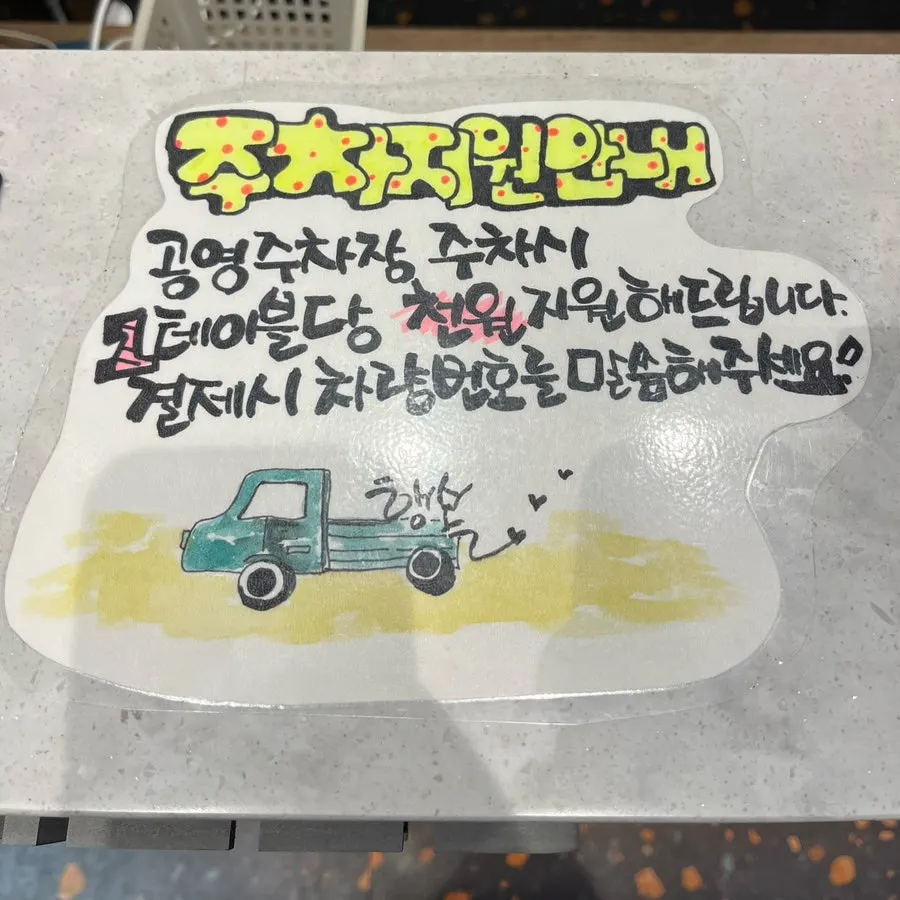 주차지원안내
공영주차장 주차시
1테이블당 천원 지원해드립니다.
결제시 차량번호를 말씀해주세요
행복